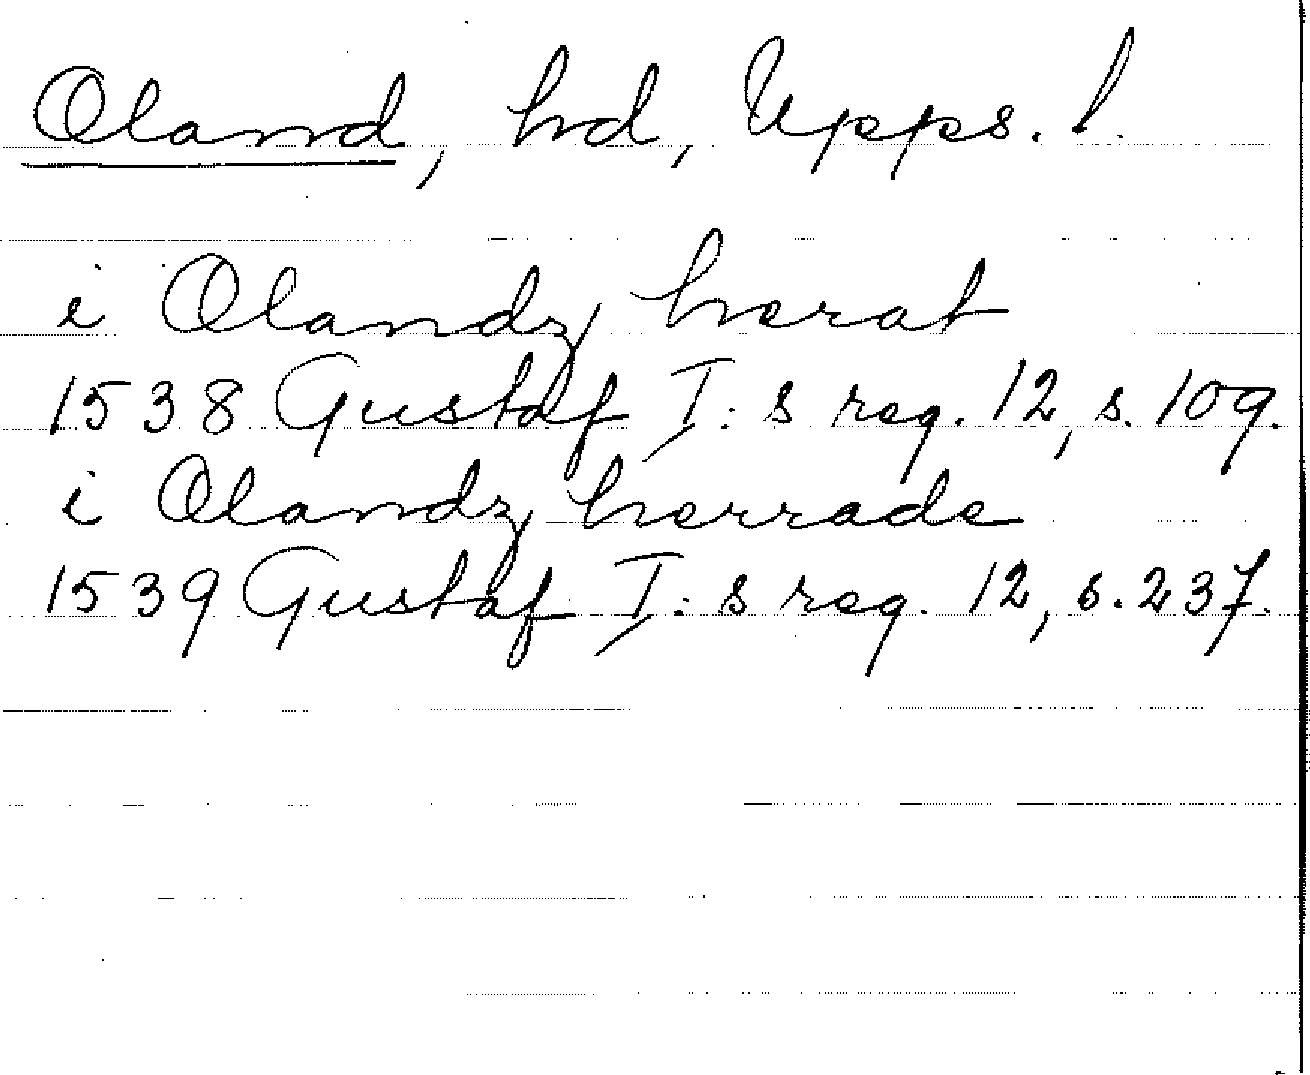 Oland, hd, Upps. l.
i Olandz herat
1538 Gustaf I: s reg. 12, s. 109.
i Olandz herrade
1539 Gustaf I: s reg. 12, s. 237.